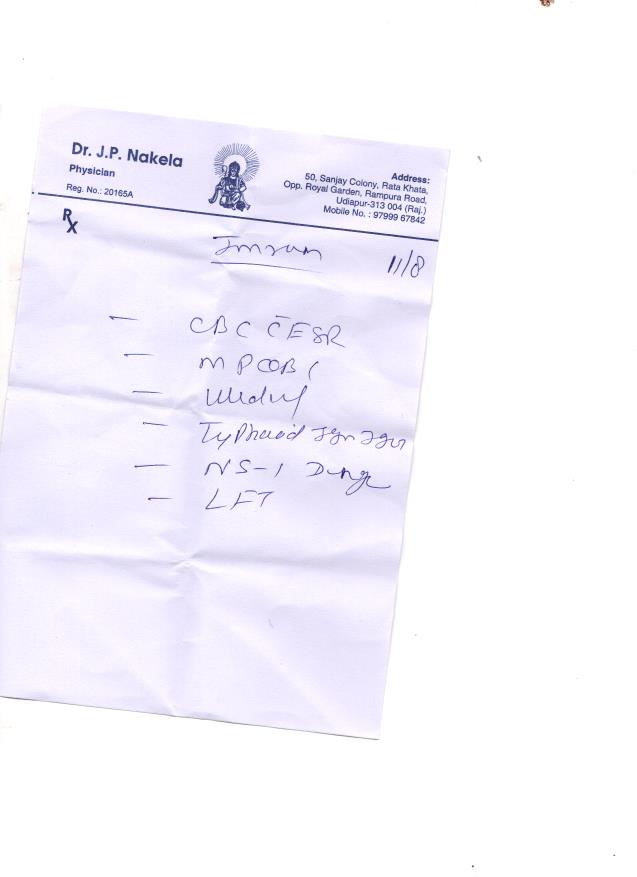 Dr. J.P. Nakela
Physician
Reg. No.: 20165A
Address:
50, Sanjay Colony, Rata Khata,
Opp. Royal Garden, Rampura Road,
Udiapur-313 004 (Raj.)
Mobile No. : 97999 67842
Rx
Imran
11/8
- CBC C̄ ESR
- MP
- Typhoid IgM IgG
- NS-1 Dengue
- LFT